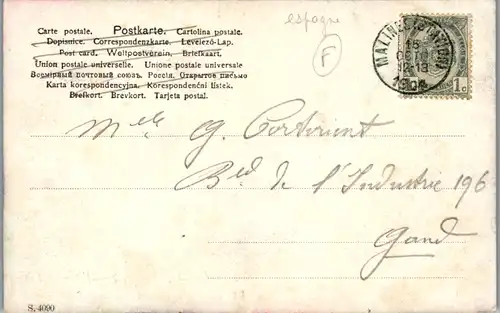 espagne
F
Carte postale. Postkarte. Cartolina postale.
Dopisnice. Correspondenzkarte. Levelező-Lap.
Post card. Weltpostverein. Briefkaart.
Union postale universelle. Unione postale universale
Всемірный почтовый союзъ. Россія. Открытое письмо
Karta korespondencyjna. Korespondenční lístek.
Brefkort. Brevkort. Tarjeta postal.
15
13
1c
Melle G.
Bld de l'Industrie 196
Gand
S. 4090